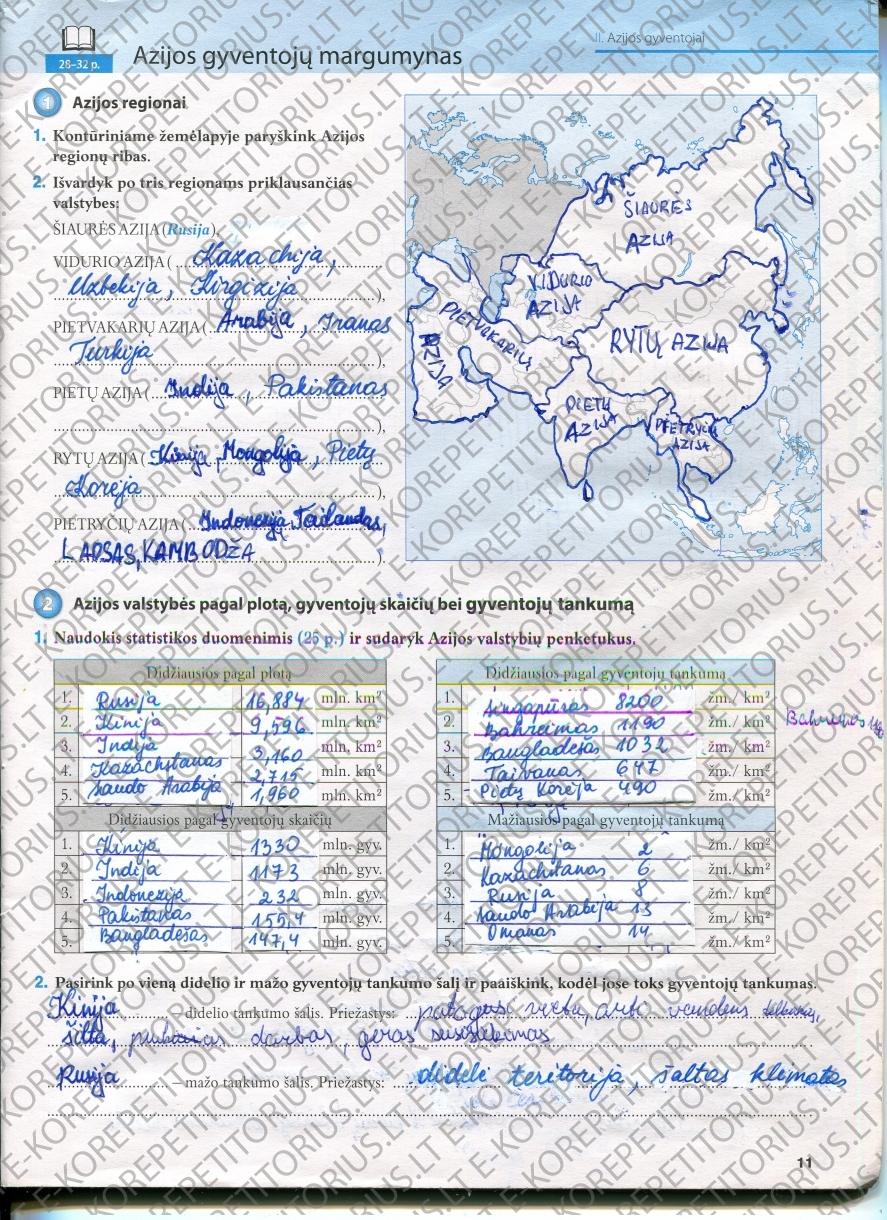 II. Azijos gyventojai
28–32 p.
Azijos gyventojų margumynas
1 Azijos regionai
1. Kontūriniame žemėlapyje paryškink Azijos
regionų ribas.
2. Išvardyk po tris regionams priklausančias
valstybes:
ŠIAURĖS AZIJA (Rusija),
VIDURIO AZIJA ( Kazachija,
Uzbekija, Kirgizija ),
PIETVAKARIŲ AZIJA ( Arabija, Iranas
Turkija ),
PIETŲ AZIJA ( Indija, Pakistanas
),
RYTŲ AZIJA ( Kinija, Mongolija, Pietų
Korėja ),
PIETRYČIŲ AZIJA ( Indonezija, Tailandas,
LAOSAS, KAMBODŽA ).
ŠIAURĖS
AZIJA
VIDURIO
AZIJA
PIETVAKARIŲ
AZIJA
RYTŲ AZIJA
PIETŲ
AZIJA
PIETRYČIŲ
AZIJA
2 Azijos valstybės pagal plotą, gyventojų skaičių bei gyventojų tankumą
1. Naudokis statistikos duomenimis (25 p.) ir sudaryk Azijos valstybių penketukus.
Didžiausios pagal plotą
1. Rusija 16,884 mln. km²
2. Kinija 9,596 mln. km²
3. Indija 3,160 mln. km²
4. Kazachstanas 2,715 mln. km²
5. Saudo Arabija 1,960 mln. km²
Didžiausios pagal gyventojų tankumą
1. Singapūras 8200 žm./ km²
2. Bahreinas 1190 žm./ km²
3. Bangladešas 1032 žm./ km²
4. Taivanas 647 žm./ km²
5. Pietų Korėja 490 žm./ km²
Didžiausios pagal gyventojų skaičių
1. Kinija 1330 mln. gyv.
2. Indija 1173 mln. gyv.
3. Indonezija 232 mln. gyv.
4. Pakistanas 155,4 mln. gyv.
5. Bangladešas 147,4 mln. gyv.
Mažiausios pagal gyventojų tankumą
1. Mongolija 2 žm./ km²
2. Kazachstanas 6 žm./ km²
3. Rusija 8 žm./ km²
4. Saudo Arabija 13 žm./ km²
5. Omanas 14 žm./ km²
2. Pasirink po vieną didelio ir mažo gyventojų tankumo šalį ir paaiškink, kodėl jose toks gyventojų tankumas.
Kinija — didelio tankumo šalis. Priežastys: patogus vieta, arti vandens telkinių,
šilta, darbas, geras susisiekimas
Rusija — mažo tankumo šalis. Priežastys: didelė teritorija, šaltas klimatas
11
E-KOREPETITORIUS.LT